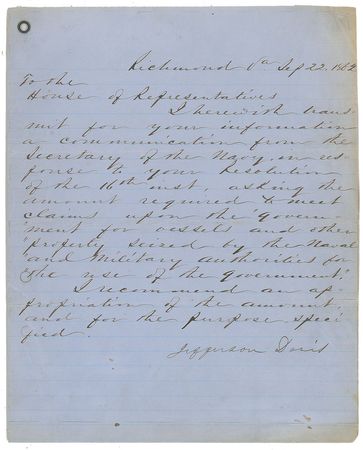 Richmond Va Sep 22. 1862
To the
House of Representatives
I herewith trans-
mit for your information
a communication from the
Secretary of the Navy, in res-
ponse to your Resolution
of the 16th inst, asking the
amount required to meet
claims upon the Govern-
ment for vessels and other
"property seized by the Naval
"and Military authorities for
"the use of the Government."
I recommend an ap-
propriation of the amount
and for the purpose speci-
fied.
Jefferson Davis